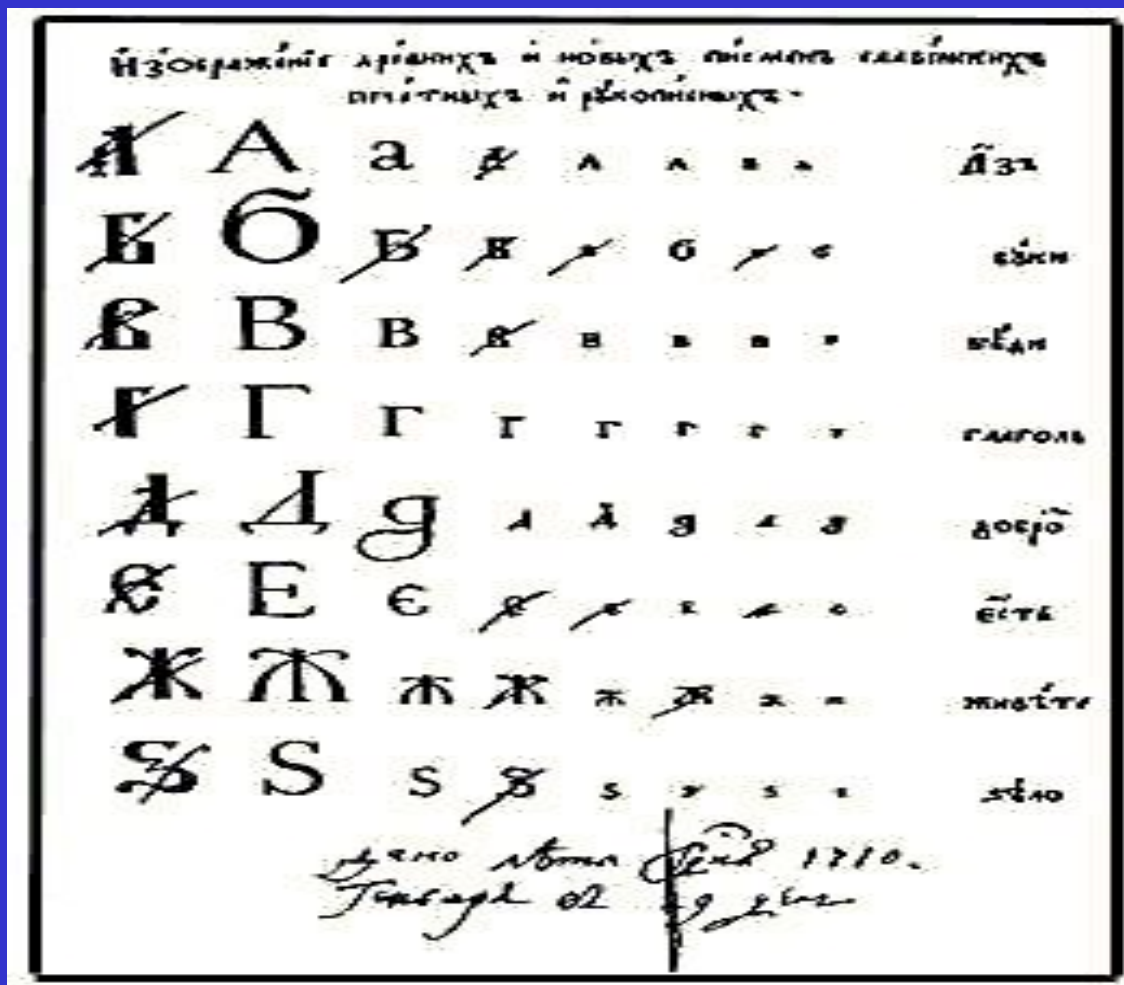 Изображенїе древнихъ и новыхъ писменъ славенскихъ
печатныхъ и рукописныхъ.
А А а А а а а а Азъ
Б б Б Б б б б б буки
В В В В в в в в вѣди
Г Г Г Г г г г г глаголь
Д Д д д д д д д добро
Є Е є е е е е е есть
Ж Ж ж Ж ж ж ж ж живѣте
Ѕ Ѕ ѕ Ѕ ѕ ѕ ѕ ѕ ѕѣло
дано лѣта 1710.
Генваря в 29 день